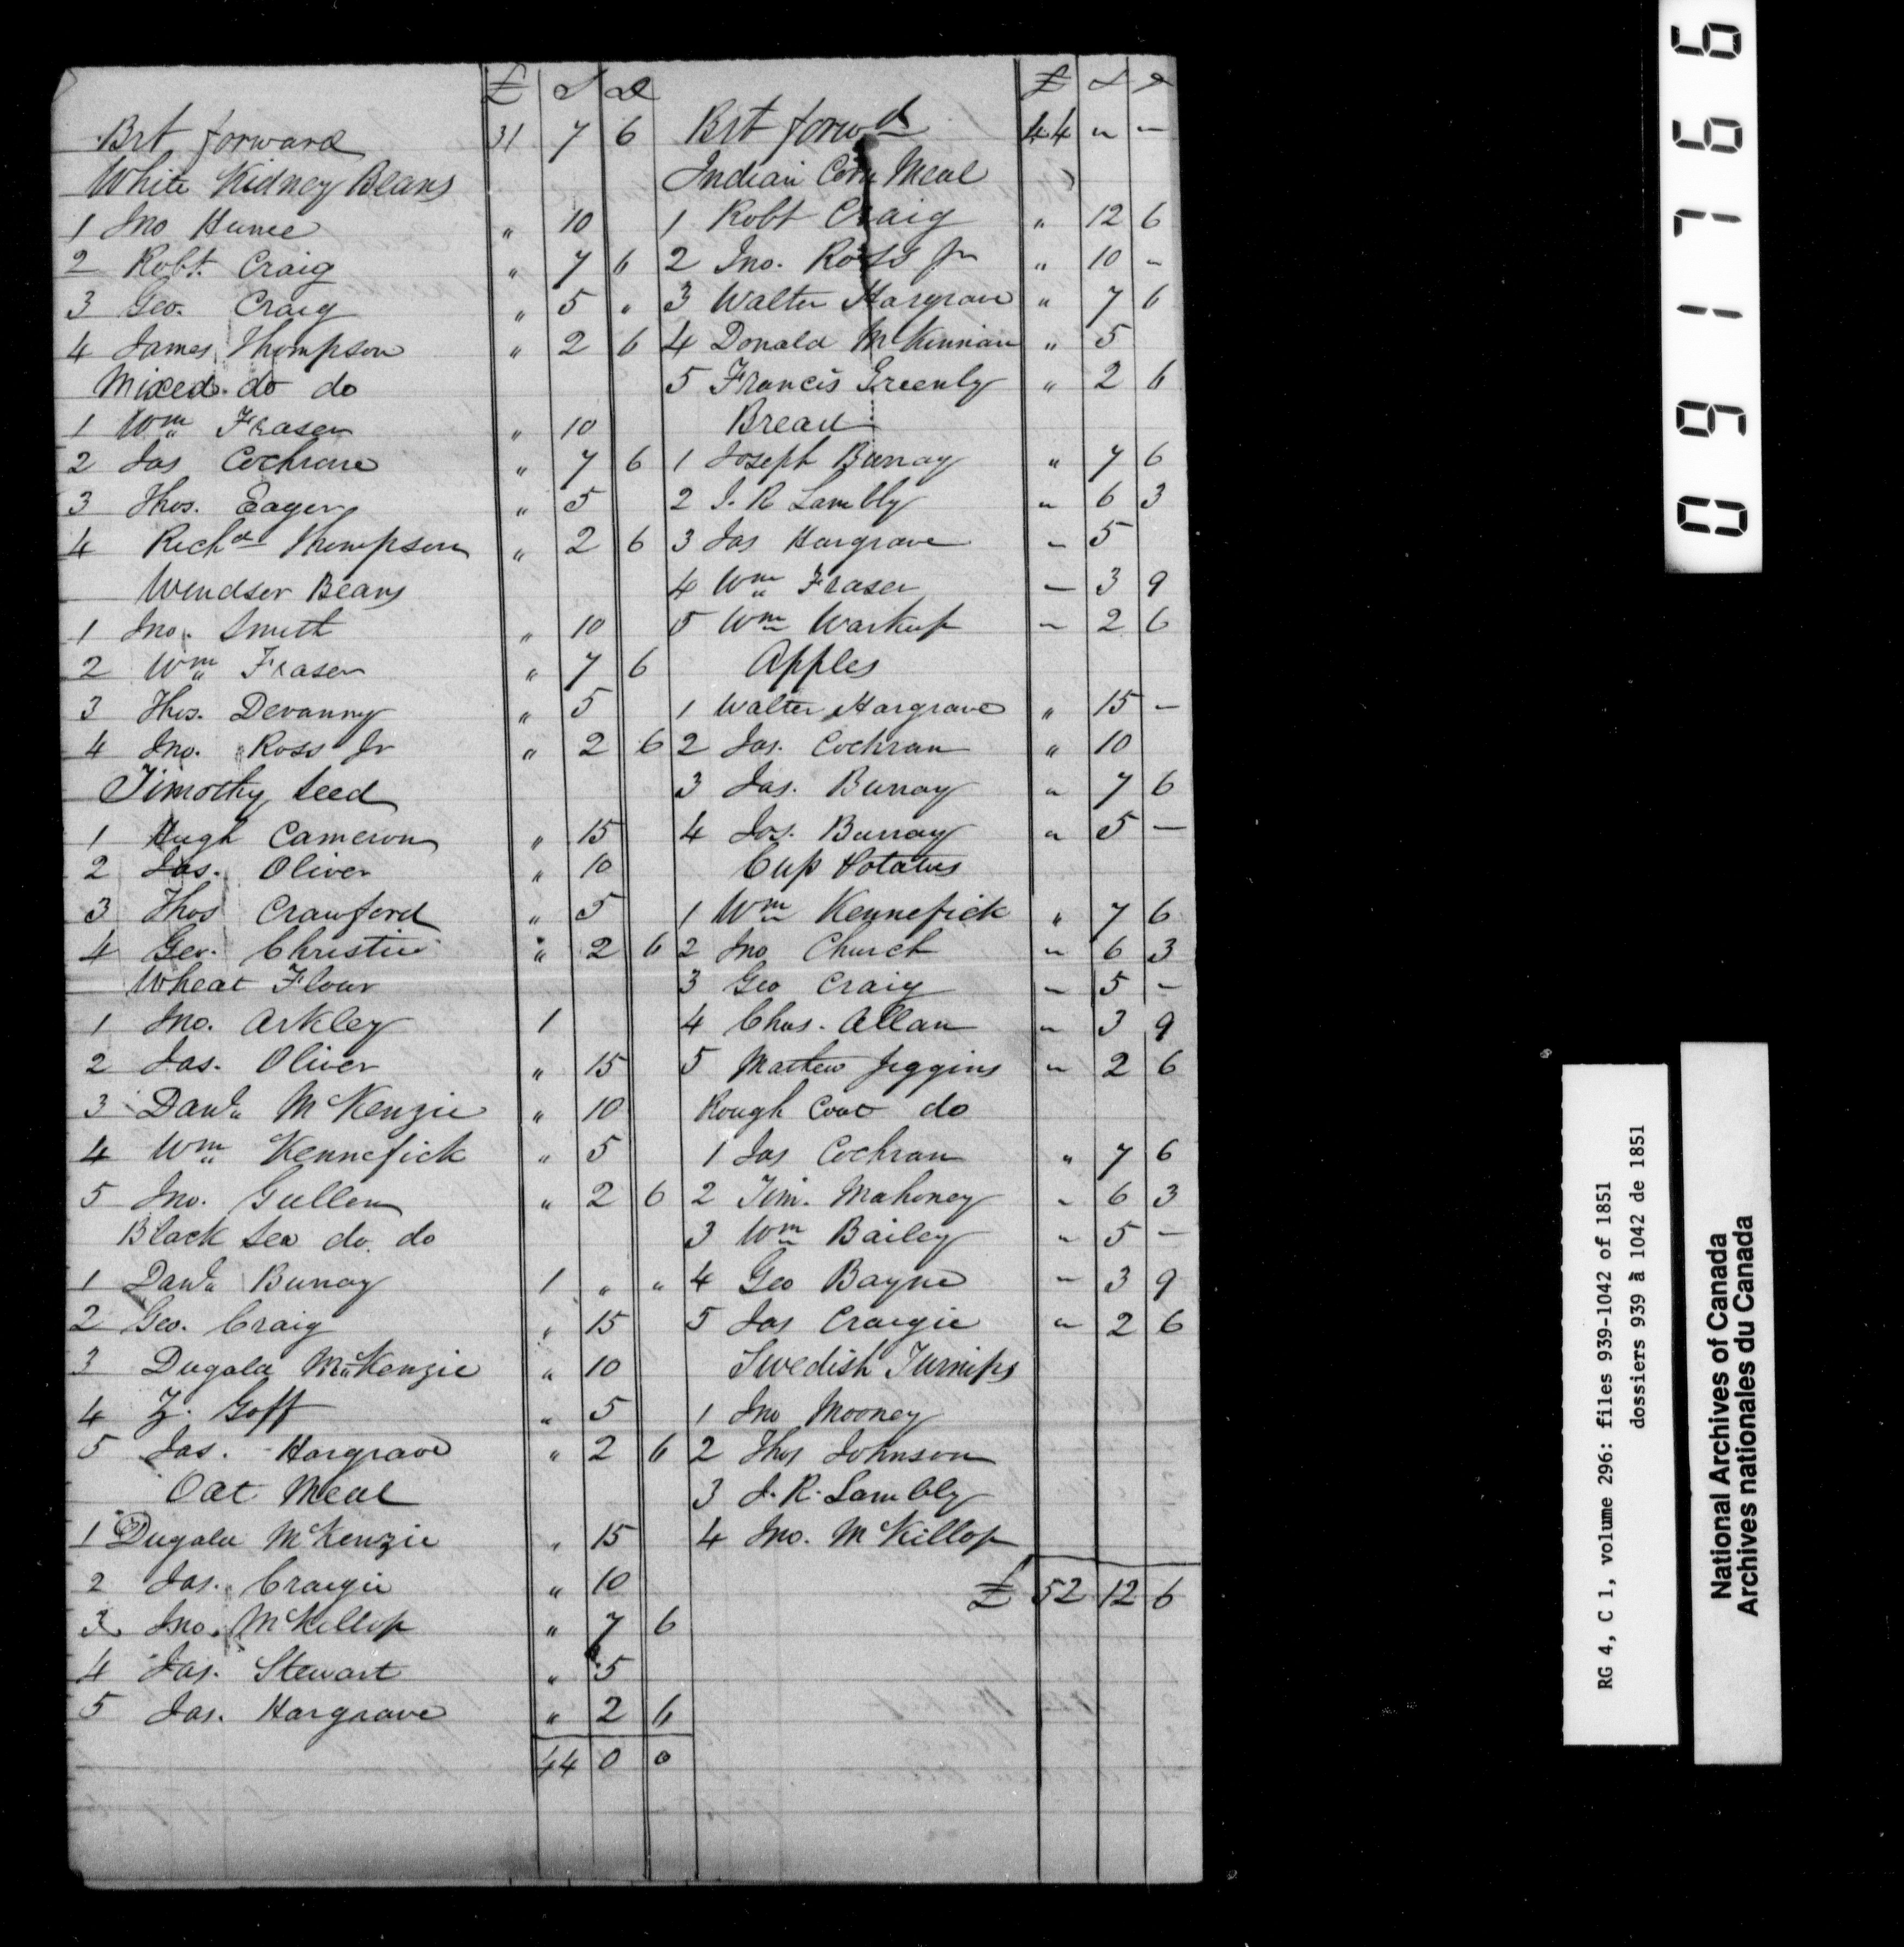 £ S D
Brt forward 31 7 6
White Kidney Beans
1 Jno Hume " 10
2 Robt. Craig " 7 6
3 Geo. Craig " 5 "
4 James Thompson " 2 6
Mixed do do
1 Wm Fraser " 10
2 Jas Cochrane " 7 6
3 Thos. Eager " 5
4 Richd Thompson " 2 6
Windsor Beans
1 Jno. Smith " 10
2 Wm Fraser " 7 6
3 Thos. Devanny " 5
4 Jno. Ross Jr " 2 6
Timothy Seed
1 Hugh Cameron " 15
2 Jas. Oliver " 10
3 Thos Crawford " 5
4 Geo. Christie " 2 6
Wheat Flour
1 Jno. Arkley 1
2 Jas. Oliver " 15
3 Danl. McKenzie " 10
4 Wm Kennefick " 5
5 Jno. Gullen " 2 6
Black Sea do. do
1 Danl. Burray 1 " "
2 Geo. Craig " 15
3 Dugald McKenzie " 10
4 Z. Goff " 5
5 Jas. Hargrave " 2 6
Oat Meal
1 Dugald McKenzie " 15
2 Jas. Craigie " 10
3 Jno. McKillop " 7 6
4 Jas. Stewart " 5
5 Jas. Hargrave " 2 6
44 0 0
£ S D
Brt forwd 44 " –
Indian Corn Meal
1 Robt Craig " 12 6
2 Jno. Ross Jr " 10 -
3 Walter Hargrave " 7 6
4 Donald McKinnan " 5
5 Francis Greenly " 2 6
Bread
1 Joseph Burray " 7 6
2 J. R Lambly " 6 3
3 Jas Hargrave – 5
4 Wm Fraser – 3 9
5 Wm Warkup " 2 6
Apples
1 Walter Hargrave " 15 –
2 Jas. Cochran " 10
3 Jas. Burray " 7 6
4 Jos. Burray " 5 –
Cup Potatoes
1 Wm Kennefick " 7 6
2 Jno Church " 6 3
3 Geo Craig – 5 –
4 Chas. Allan " 3 9
5 Mathew Jiggins " 2 6
Rough Coat do
1 Jas Cochran " 7 6
2 Tim. Mahoney " 6 3
3 Wm Bailey " 5 –
4 Geo Bayne – 3 9
5 Jas Craigie " 2 6
Swedish Turnips
1 Jno Mooney
2 Thos Johnson
3 J. R. Lambly
4 Jno. McKillop
£ 52 12 6
091766
RG 4, C 1, volume 296: files 939-1042 of 1851
dossiers 939 à 1042 de 1851
National Archives of Canada
Archives nationales du Canada